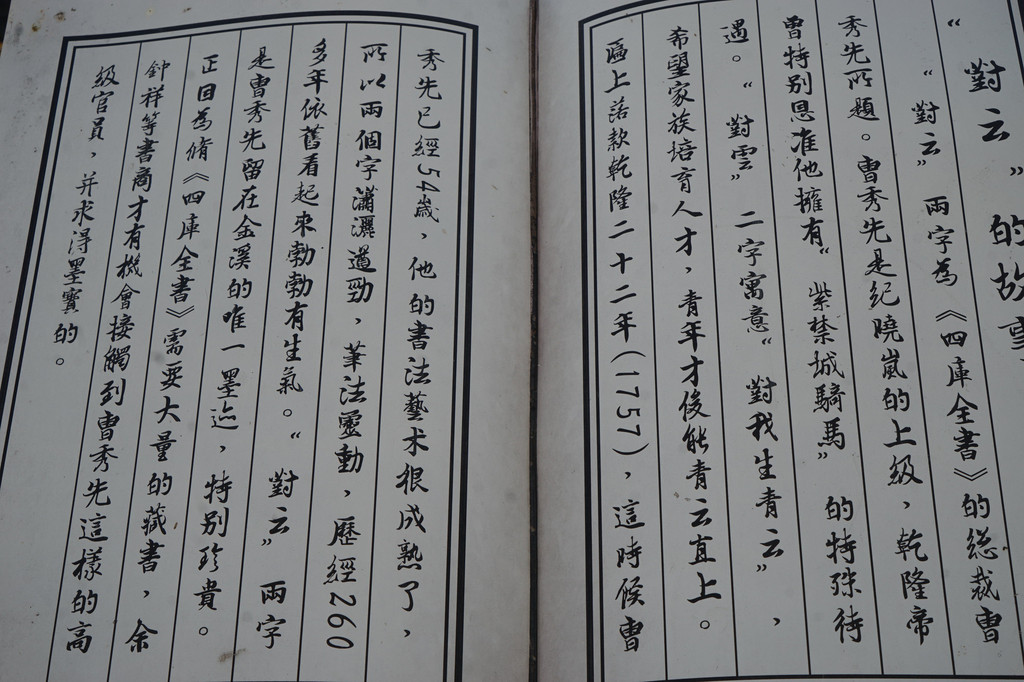 “對云”的故事
“對云”兩字為《四庫全書》的总裁曹
秀先所題。曹秀先是紀曉嵐的上級，乾隆帝
曾特别恩准他擁有“紫禁城騎馬”的特殊待
遇。“對雲”二字寓意“對我生青云”，
希望家族培育人才，青年才俊能青云直上。
匾上落款乾隆二十二年(1757)，這時候曹
秀先已經54歲，他的書法藝术很成熟了，
所以兩個字瀟灑遒勁，筆法靈動，歷經260
多年依舊看起來勃勃有生氣。“對云”兩字
是曹秀先留在金溪的唯一墨迹，特别珍貴。
正因為脩《四庫全書》需要大量的藏書，余
鈡祥等書商才有機會接觸到曹秀先這樣的高
級官員，并求得墨寶的。